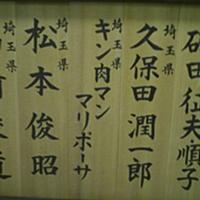 砥田征夫
順子
埼玉県
久保田潤一郎
埼玉県
キン肉マン
マリポーサ
埼玉県
松本俊昭
埼玉県